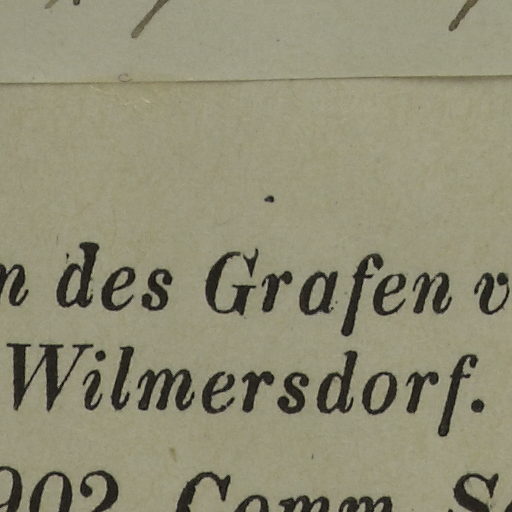 n des Grafen v
Wilmersdorf.
902. Comm. S